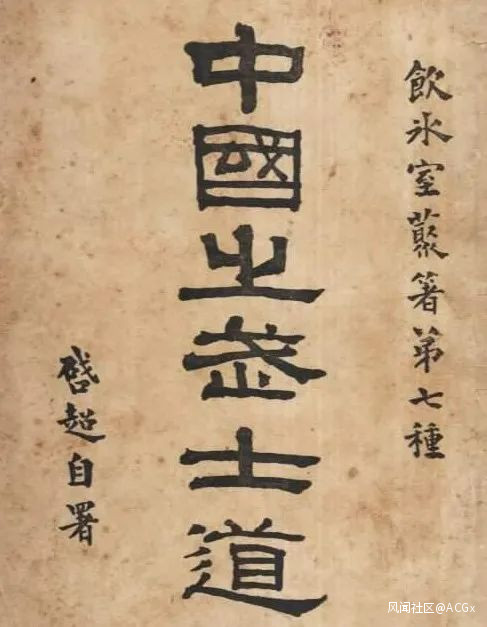 飲氷室叢著第七種
中國之武士道
啓超自署
风闻社区@ACGx